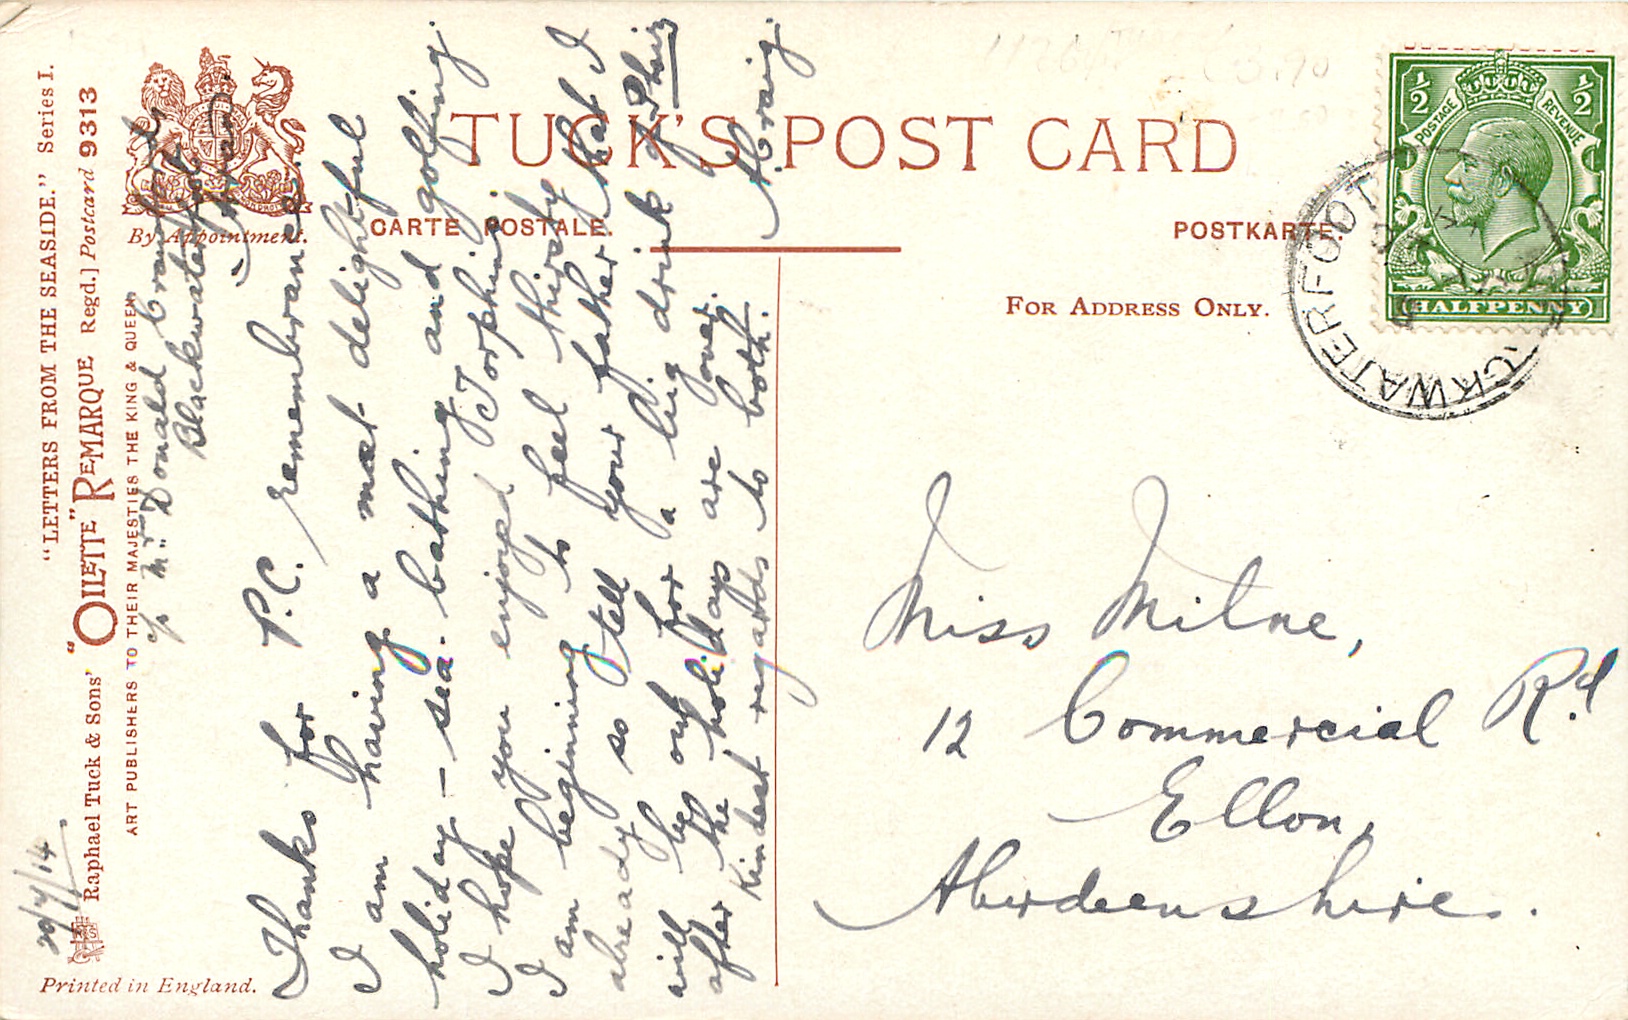 "LETTERS FROM THE SEASIDE." Series I.
Raphael Tuck & Sons' "OILETTE" REMARQUE Regd.] Postcard 9313
ART PUBLISHERS TO THEIR MAJESTIES THE KING & QUEEN
By Appointment.
Printed in England.
TUCK'S POST CARD
CARTE POSTALE.
POSTKARTE
FOR ADDRESS ONLY.
½ ½
POSTAGE REVENUE
HALFPENNY
29/7/14
c/o Mrs Donald Crawford
Blackwaterfoot
Arran
Thanks for P.C. remembrance.
I am having a most delightful
holiday - sea-bathing and golfing
I hope you enjoyed Torphins
I am beginning to feel thirsty
already so tell your father that I
will be out for a big drink of Phiz
after the holidays are over.
Kindest regards to both.
A Craig
Miss Milne,
12 Commercial Rd.
Ellon,
Aberdeenshire.